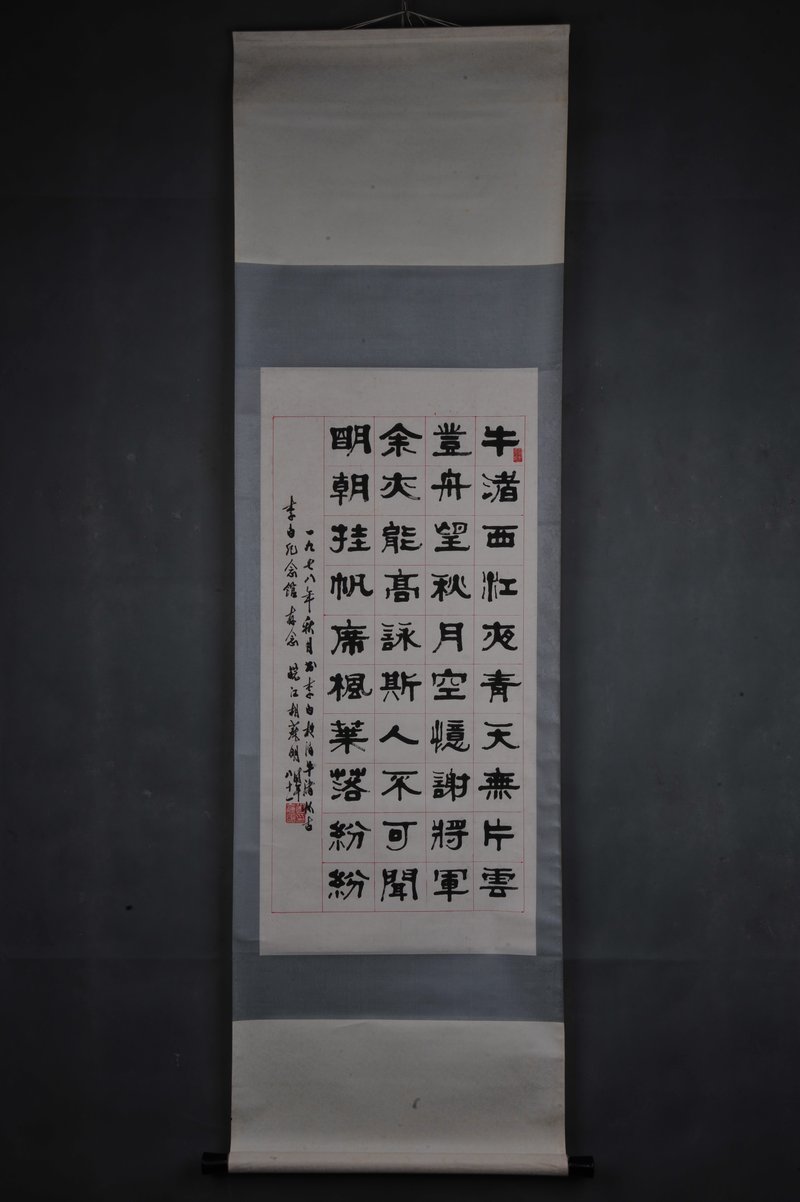 牛渚西江夜青天無片雲
登舟望秋月空憶謝將軍
余亦能高詠斯人不可聞
明朝挂帆席楓葉落紛紛
一九七八年秋月書李白夜泊牛渚懷古
李白紀念館存念 皖江胡葆明 八十一